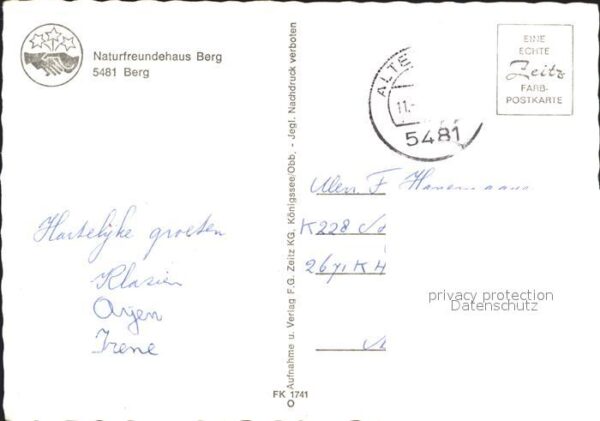 Naturfreundehaus Berg
5481 Berg
Hartelijke groeten
Klasien
Arjen
Irene
Aufnahme u. Verlag F.G. Zeitz KG, Königssee/Obb. - Jegl. Nachdruck verboten
FK 1741
ALTE
11.-
5481
EINE
ECHTE
Zeitz
FARB-
POSTKARTE
F
K228
2671 KH
privacy protection
Datenschutz